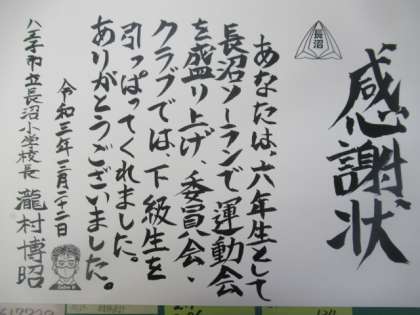 感謝状
長沼
あなたは、六年生として
長沼ソーランで運動会
を盛り上げ、委員会・
クラブでは、下級生を
引っぱってくれました。
ありがとうございました。
令和三年三月二十二日
八王子市立長沼小学校長 瀧村博昭